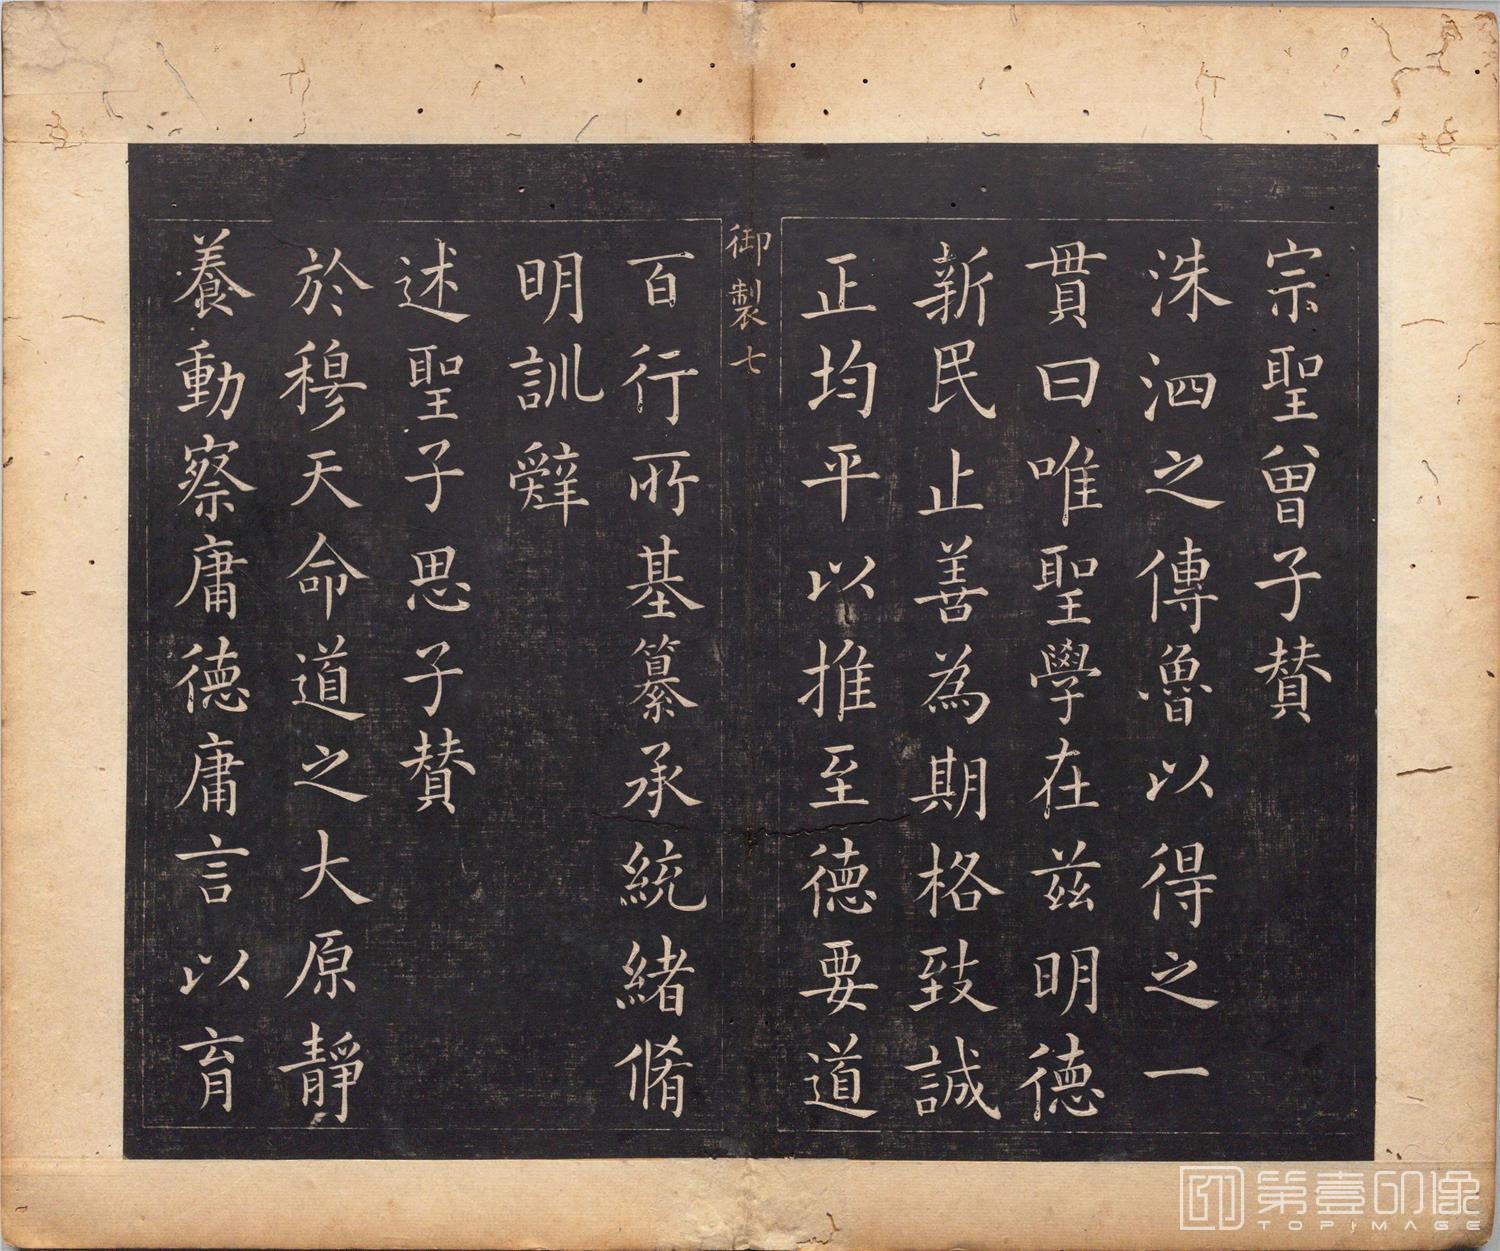 宗聖曾子賛
洙泗之傳魯以得之一
貫曰唯聖學在茲明德
新民止善為期格致誠
正均平以推至德要道
御製七
百行所基纂承統緒脩
明訓辭
述聖子思子賛
於穆天命道之大原靜
養動察庸德庸言以育
第壹印像
TOPIMAGE